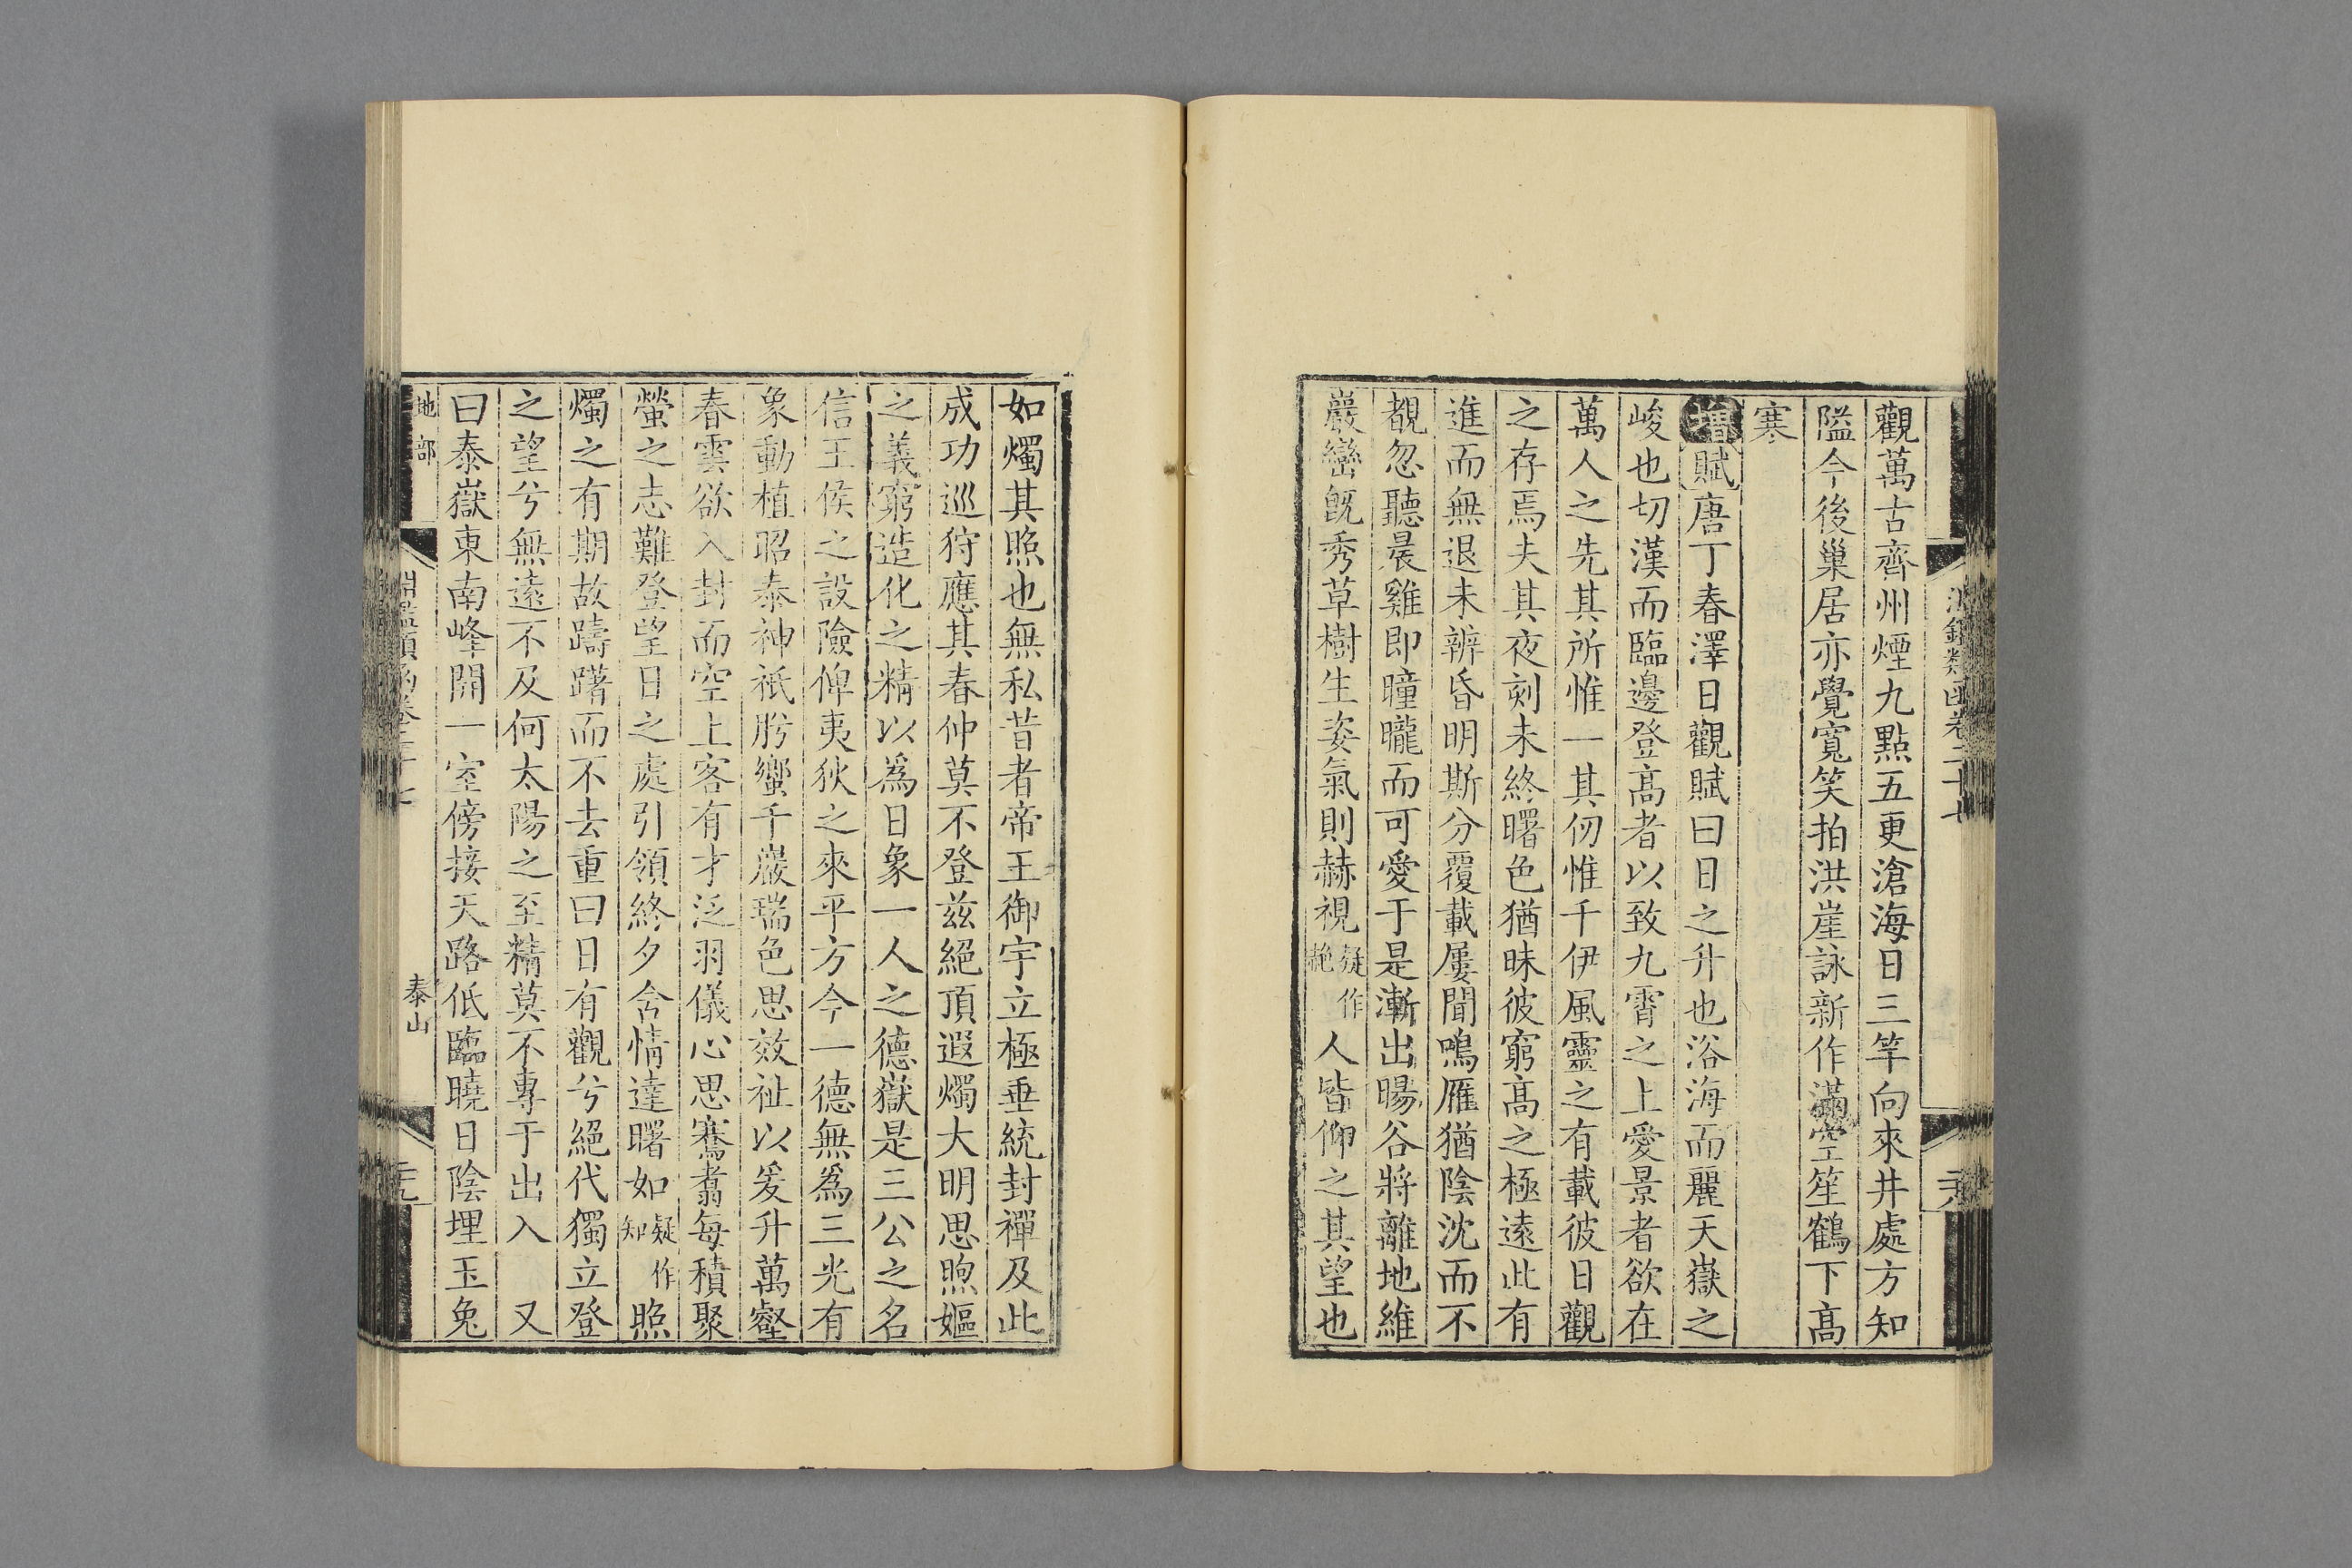 觀萬古齊州煙九點五更滄海日三竿向來井處方知
隘今後巢居亦覺寬笑拍洪崖詠新作滿空笙鶴下高
寒
增賦唐丁春澤日觀賦曰日之升也浴海而麗天嶽之
峻也切漢而臨邊登高者以致九霄之上愛景者欲在
萬人之先其所惟一其仞惟千伊風靈之有載彼日觀
之存焉夫其夜刻未終曙色猶昧彼窮高之極遠此有
進而無退未辨昏明斯分覆載屢聞鳴雁猶陰沈而不
覩忽聽晨雞即曈曨而可愛于是漸出暘谷將離地維
巖巒既秀草樹生姿氣則赫視疑作艴人皆仰之其望也
如燭其照也無私昔者帝王御宇立極垂統封禪及此
成功巡狩應其春仲莫不登茲絕頂遐燭大明思煦嫗
之義窮造化之精以為日象一人之德嶽是三公之名
信王侯之設險俾夷狄之來平方今一德無為三光有
象動植昭泰神祇肹蠁千巖瑞色思效祉以爰升萬壑
春雲欲入封而空上客有才泛羽儀心思騫翥每積聚
螢之志難登望日之處引領終夕含情達曙如疑作知照
燭之有期故躊躇而不去重曰日有觀兮絕代獨立登
之望兮無遠不及何太陽之至精莫不專于出入 又
曰泰嶽東南峰開一室傍接天路低臨曉日陰埋玉兔
地部
淵鑑類函卷二十七
泰山